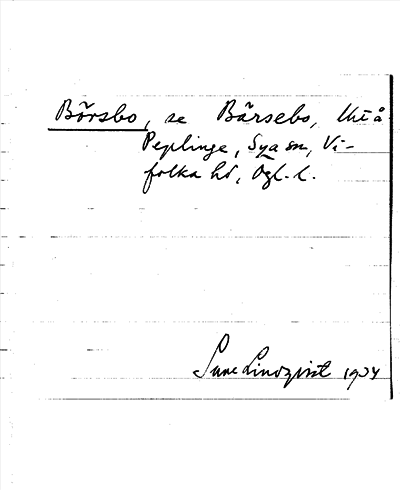 Börsbo, se Bärsebo, Utå
Peplinge, Sya sn, Vi-
folka hd, Ögl. l.
Sune Lindqvist 1934